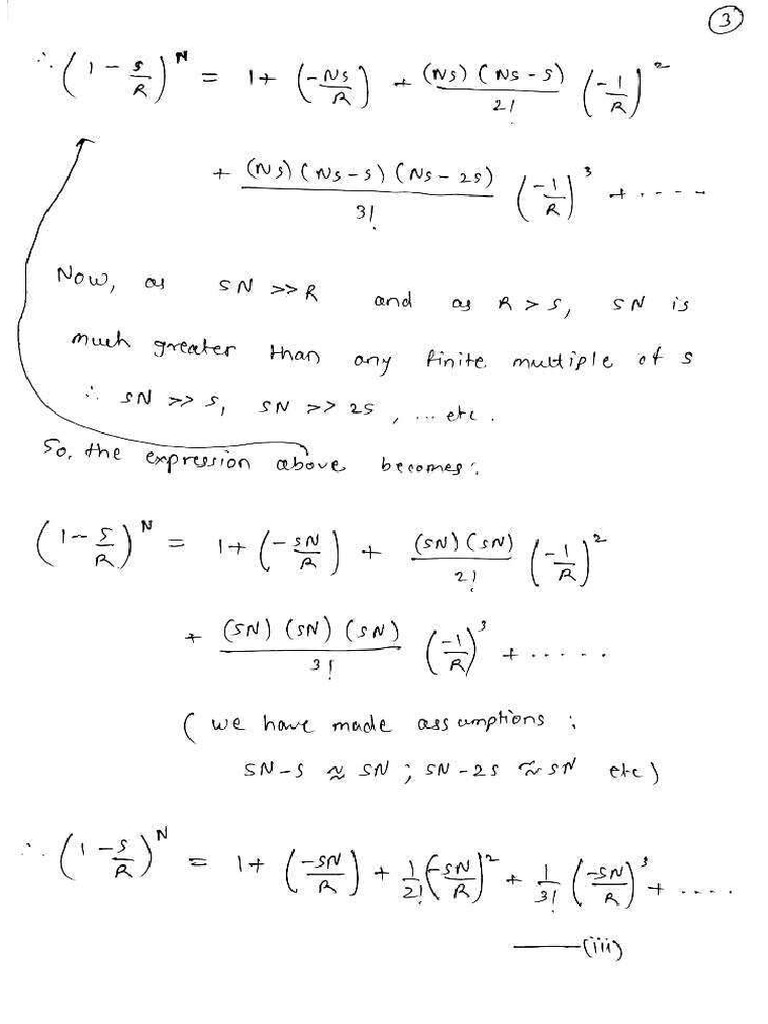 3
∴ (1 - s/R)^N = 1 + (-Ns/R) + (Ns)(Ns - s)/2! (-1/R)^2
+ (Ns)(Ns - s)(Ns - 2s)/3! (-1/R)^3 + ....
Now, as SN >> R and as R > s, SN is
much greater than any finite multiple of s
∴ SN >> s, SN >> 2s, ... etc.
So, the expression above becomes:
(1 - s/R)^N = 1 + (-SN/R) + (SN)(SN)/2! (-1/R)^2
+ (SN)(SN)(SN)/3! (-1/R)^3 + .....
(we have made assumptions:
SN - s ≈ SN; SN - 2s ≈ SN etc)
∴ (1 - s/R)^N = 1 + (-SN/R) + 1/2! (-SN/R)^2 + 1/3! (-SN/R)^3 + ....
—(iii)